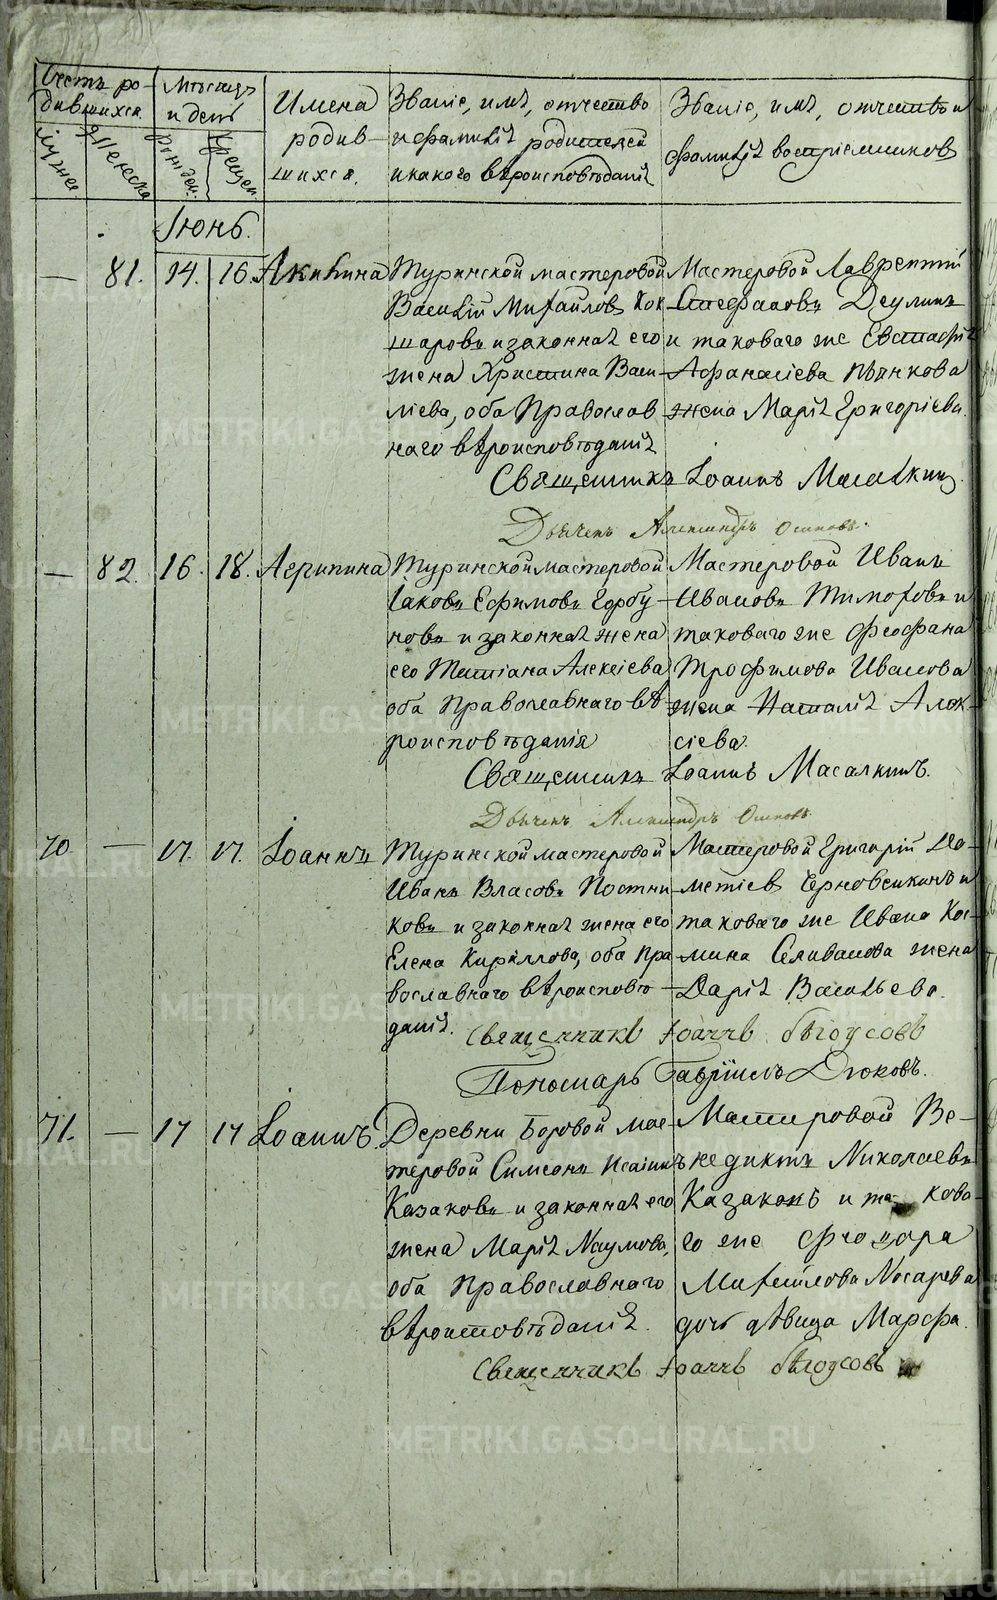 Счетъ ро-
дившихся.
Мѣсяцъ
и день
Имена
родив-
шихся.
Званіе, имѣ, отчество
и фамилія родителей
и какого вѣроисповѣданія
Званіе, имѣ, отчество и
фамилія воспріемниковъ
мужеска
Женска
рожден.
крещен.
Іюнь.
— 81. 14. 16. Акилина
Туринской мастеровой
Василій Михайловъ Кок-
шаровъ и законная его
жена Христина Васи-
ліева, оба Православ
наго вѣроисповѣданія
Мастеровой Лаврентій
Стефановъ Деулинъ
и таковаго же Евстафія
Афанасіева Пьянкова
жена Марія Григоріева.
Священникъ Іоаннъ Масалкинъ.
Дьячекъ Александръ Осиповъ.
— 82. 16. 18. Агрипина
Туринской мастеровой
Іаковъ Ефимовъ Горбу-
новъ и законная жена
его Татіана Алексіева
оба Православнаго вѣ-
роисповѣданія
Мастеровой Иванъ
Ивановъ Тимофовъ и
таковаго же Феофана
Трофимова Иванова
жена Наталія Алек-
сіева.
Священникъ Іоаннъ Масалкинъ.
Дьячекъ Александръ Осиповъ.
70 — 17. 17. Іоаннъ
Туринской мастеровой
Иванъ Власовъ Постни-
ковъ и законная жена его
Елена Кирѵллова, оба Пра-
вославнаго вѣроисповѣ-
данія.
Мастеровой Григорій Дο-
метіевъ Черноскикинъ и
таковаго же Ивана Кос-
мина Селиванова жена
Дарія Васильева.
Священникъ Іоаннъ Бѣлоусовъ
Пономарь Гавріилъ Дюковъ.
71. — 17 17 Іоаннъ.
Деревни Боровой мас-
теровой Симеонъ Исаіинъ
Казаковъ и законная его
жена Марія Наумова,
оба Православнаго
вѣроисповѣданія.
Мастеровой Ве-
недиктъ Николаевъ
Казаковъ и та- кова-
го же Феодора
Михайлова Носарева
дочь дѣвица Марфа.
Священникъ Іоаннъ Бѣлоусовъ
METRIKI.GASO-URAL.RU